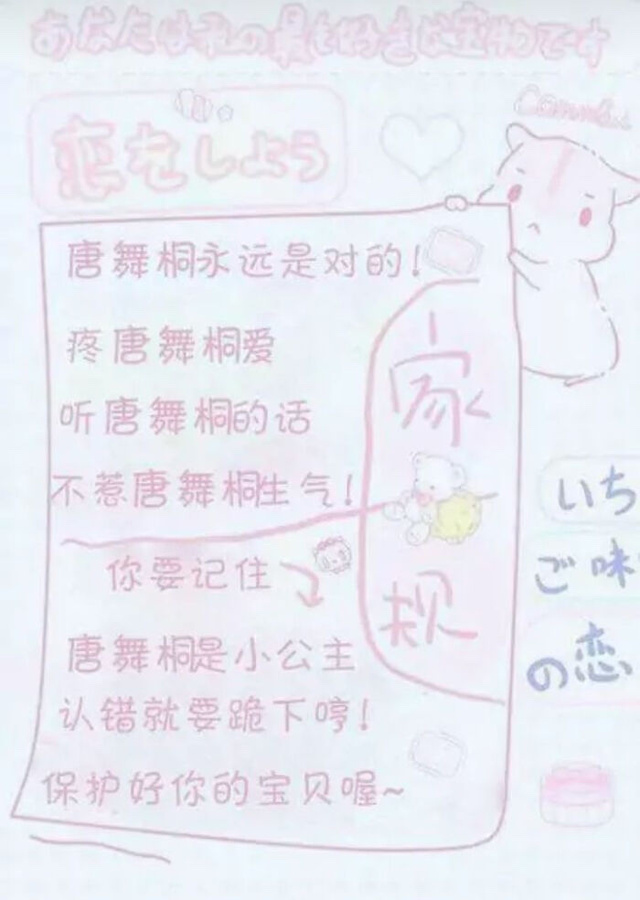 あなたは私の最も好きな宝物です
恋をしよう
唐舞桐永远是对的!
疼唐舞桐爱
听唐舞桐的话
不惹唐舞桐生气!
家规
你要记住
唐舞桐是小公主
认错就要跪下哼!
保护好你的宝贝喔~
いち
ご味
の恋